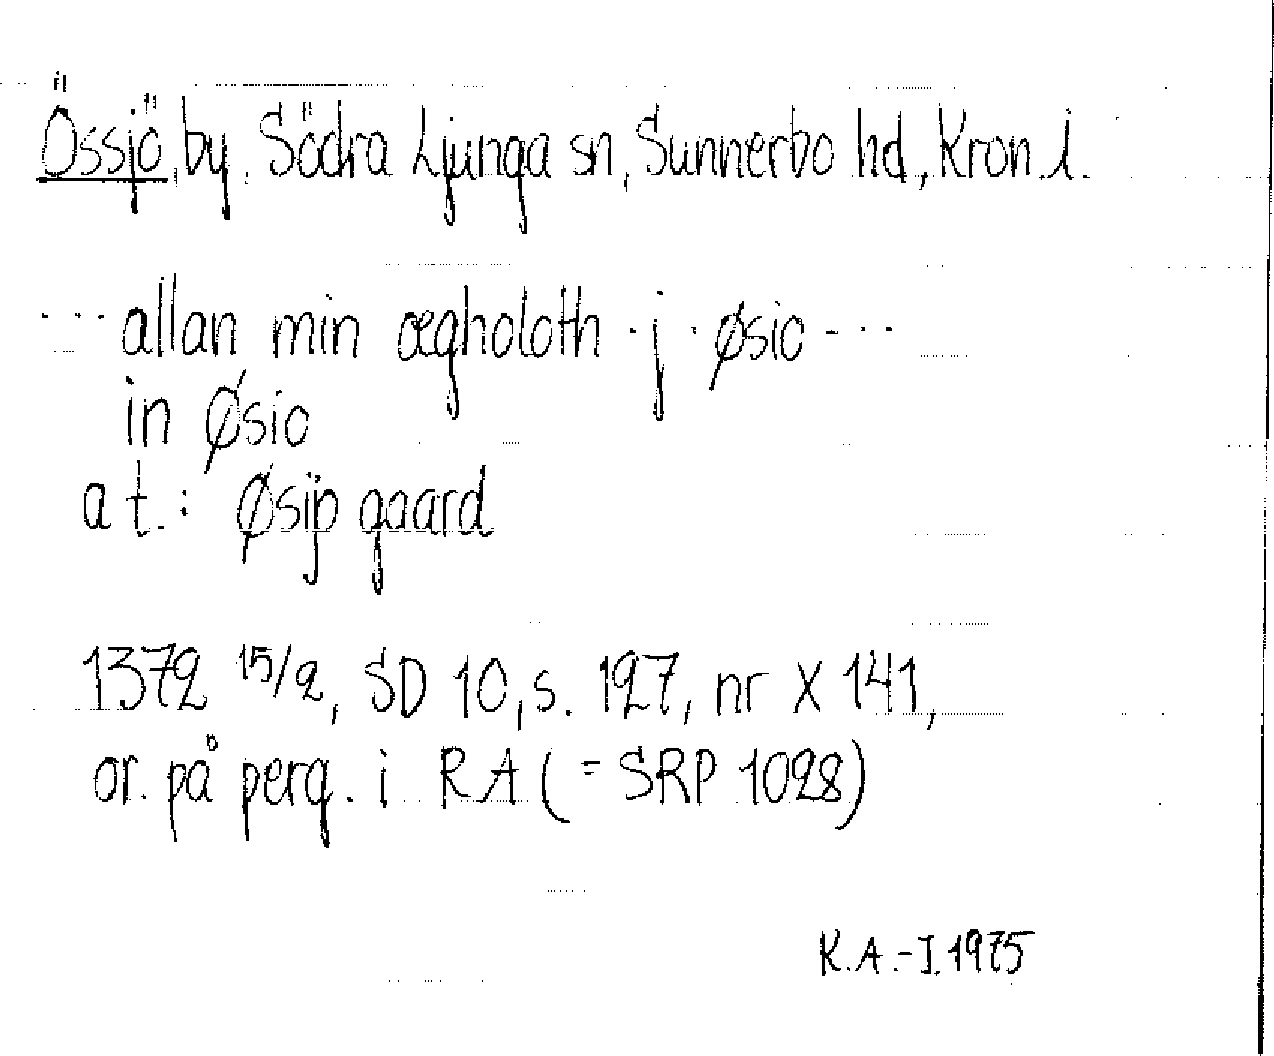 Össjö, by. Södra Ljunga sn, Sunnerbo hd, Kron. l.
--- allan min ægholoth · j · øsio ---
in Øsio
a t.: Øsijø gaard
1372 15/2, SD 10, s. 127, nr X 141,
or. på perg. i RA (= SRP 1028)
K.A.-I. 1975